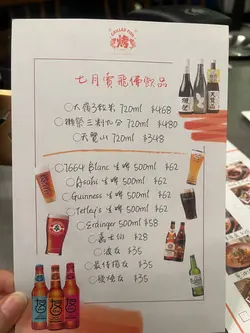 烤
七月賣飛佛飲品
720ml $468
獺祭三割九分 720ml $480
天覽山 720ml $348
1664 Blanc 生啤 500ml $62
Asahi 生啤 500ml $62
Guinness 生啤 500ml $62
Tetley's 生啤 500ml $62
Erdinger 500ml $58
嘉士伯 $28
波友 $35
最佳拍友 $35
$35